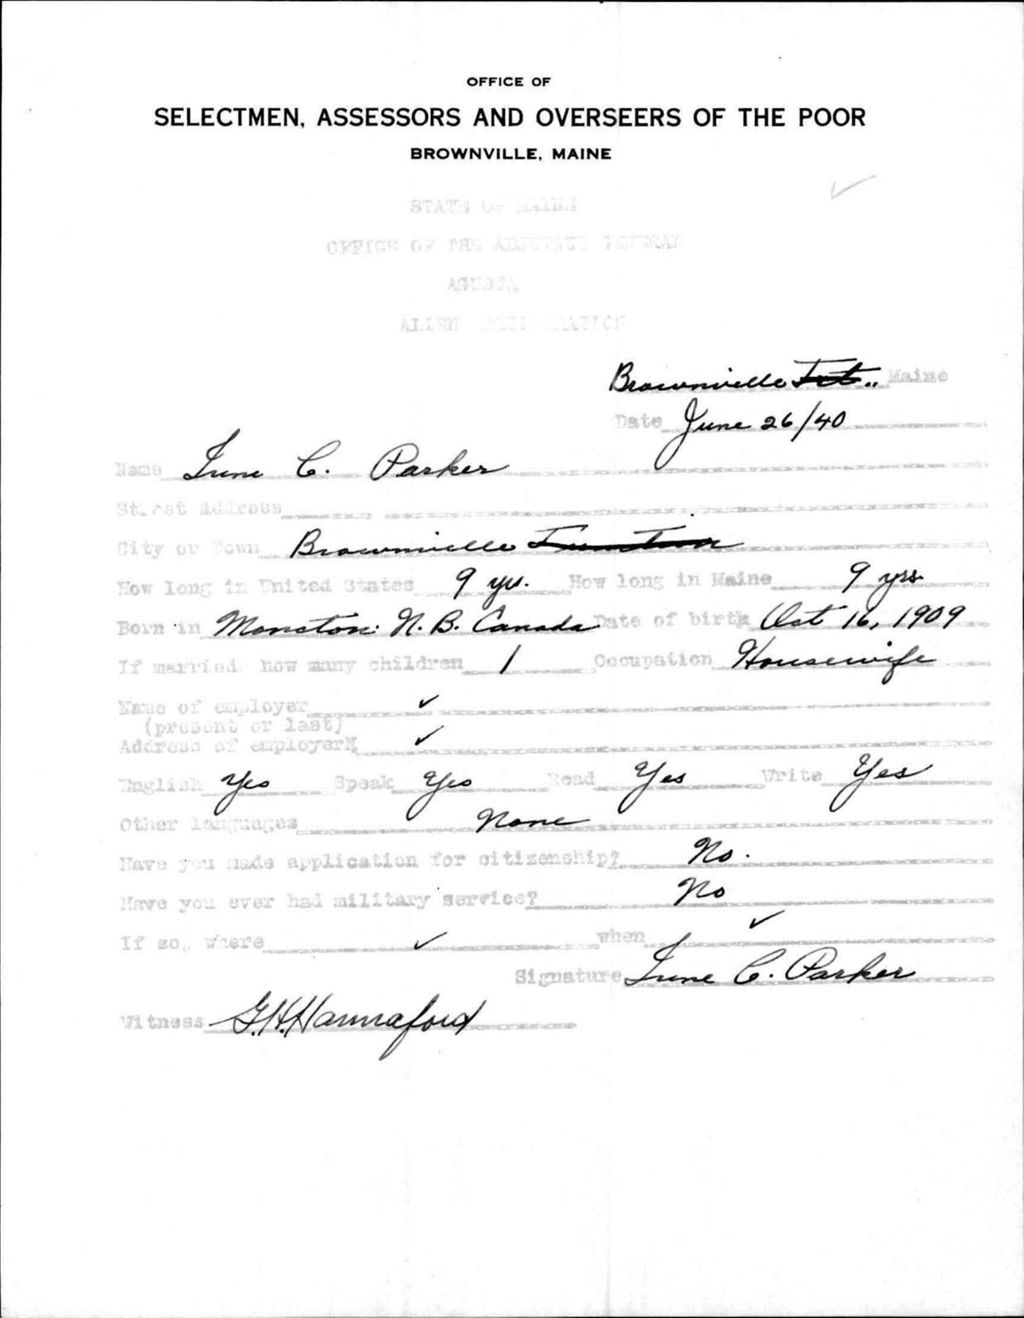 OFFICE OF
SELECTMEN, ASSESSORS AND OVERSEERS OF THE POOR
BROWNVILLE, MAINE
STATE OF MAINE
OFFICE OF THE ADJUTANT GENERAL
AGUSTA
ALIEN REGISTRATION
Brownville Jct., Maine
Date June 26/40
Name Irene C. Parker
Street Address
City or Town Brownville Junction
How long in United States 9 yrs. How long in Maine 9 yrs
Born in Moncton: N. B. Canada Date of birth Oct 16, 1909
If married, how many children 1 Occupation Housewife
Name of employer ✓
(present or last)
Address of employer ✓
English Yes Speak Yes Read Yes Write Yes
Other languages None
Have you made application for citizenship? No.
Have you ever had military service? No
If so, where ✓ when ✓
Signature Irene C. Parker
Witness G. H. Hannaford